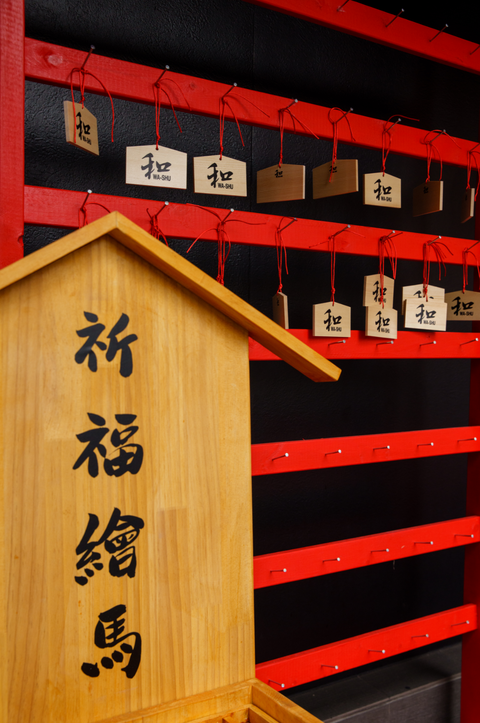 祈福繪馬
和
WA-SHU
和
WA-SHU
和
WA-SHU
和
和
和
WA-SHU
和
WA-SHU
和
WA-SHU
和
WA-SHU
和
WA-SHU
和
WA-SHU